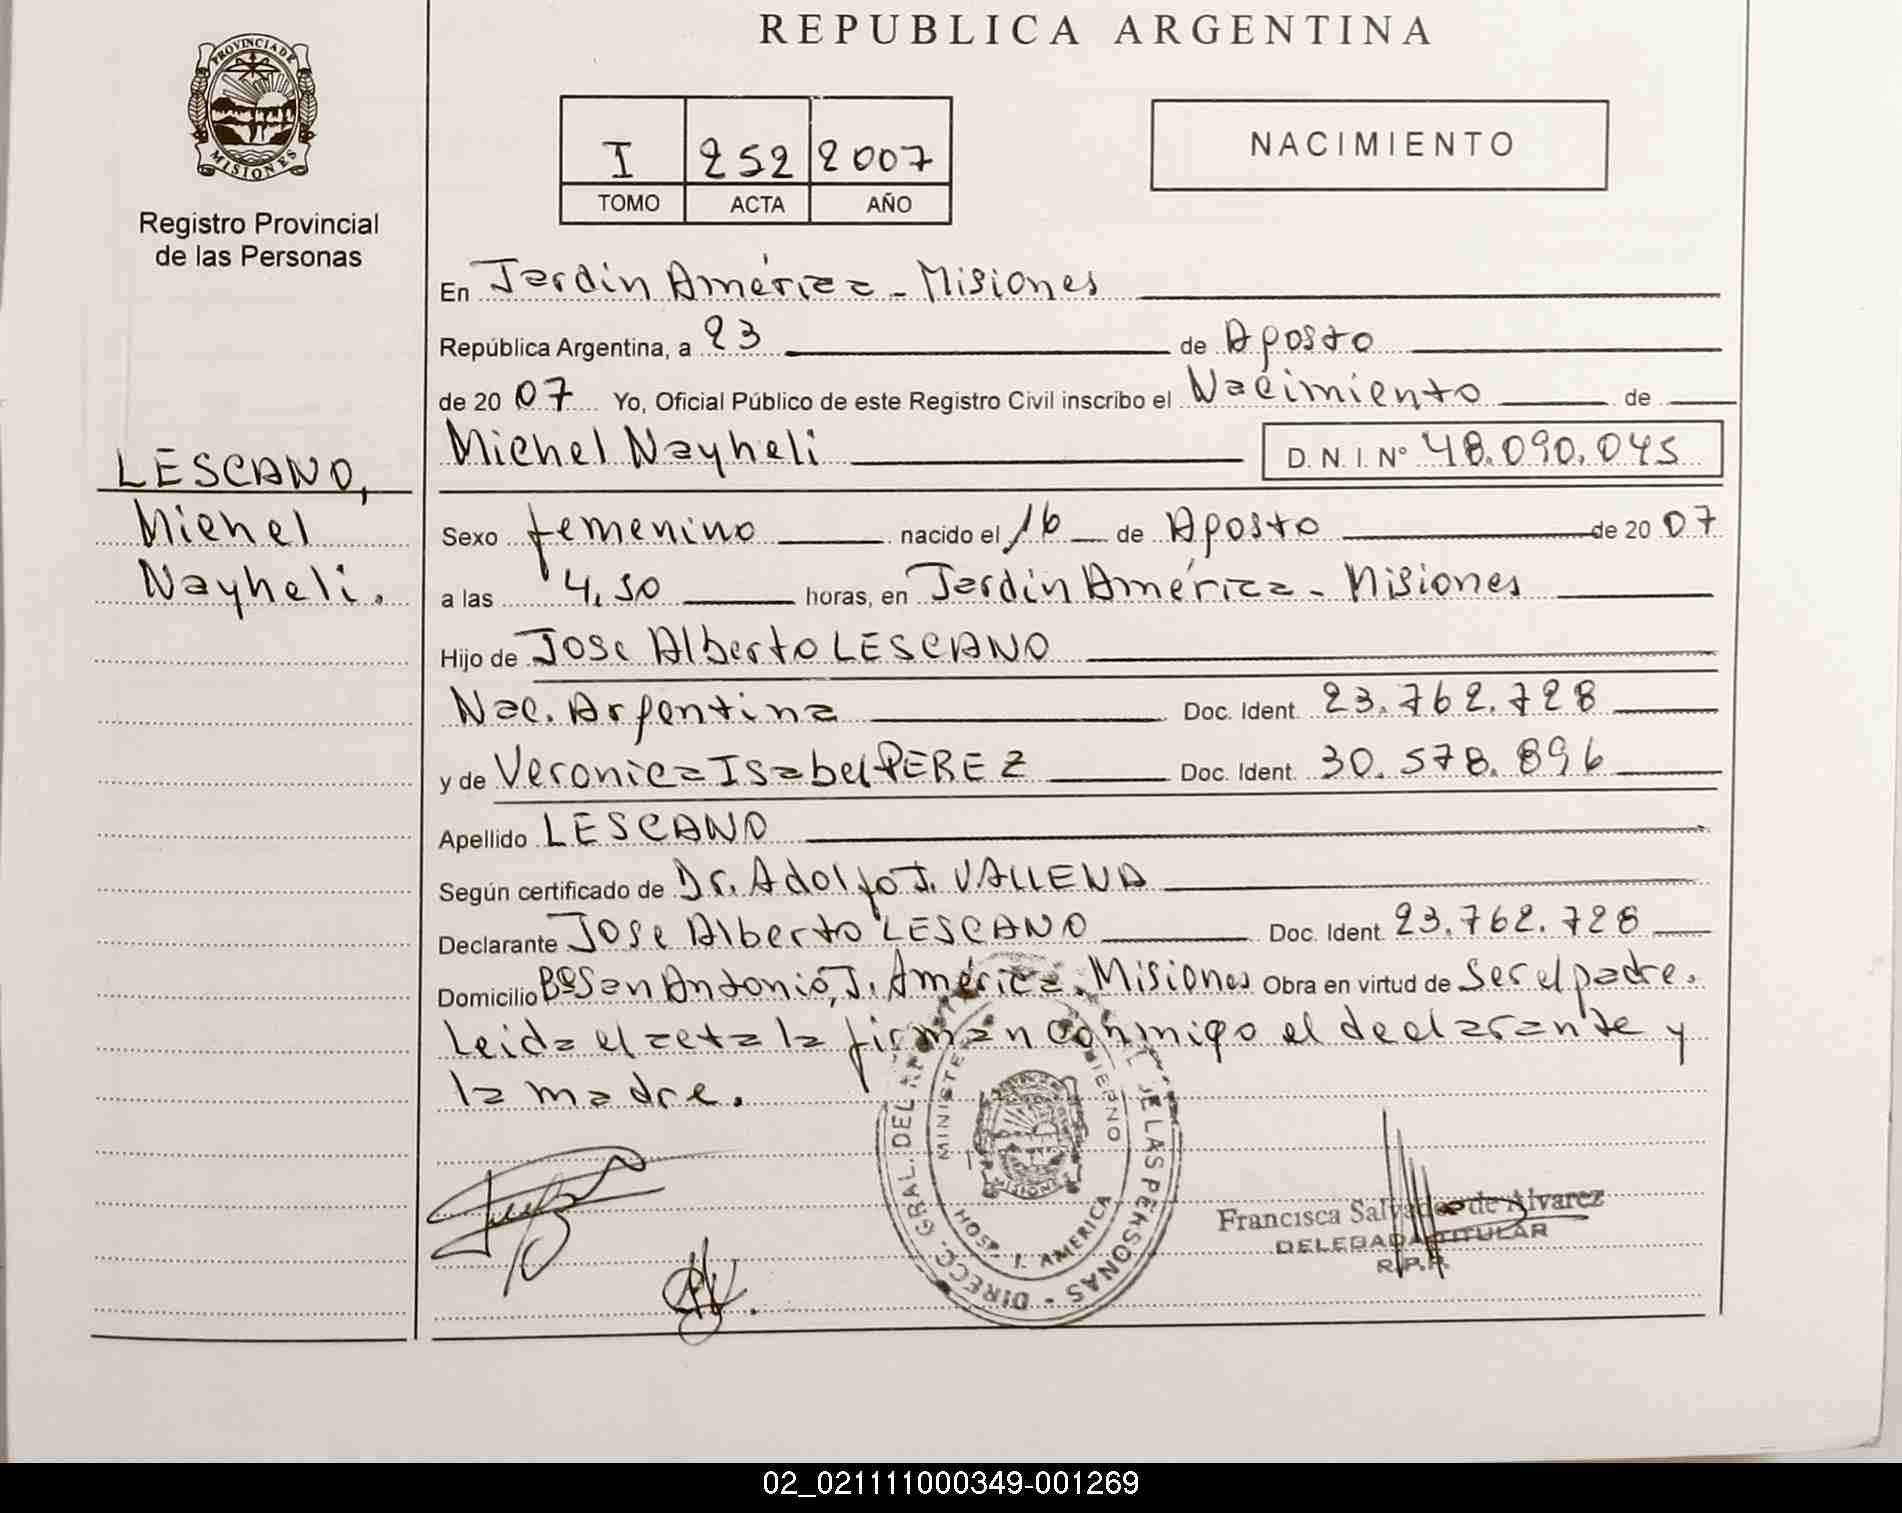 REPUBLICA ARGENTINA
PROVINCIA DE
MISIONES
Registro Provincial
de las Personas
I 252 2007
TOMO ACTA AÑO
NACIMIENTO
En Jardín América - Misiones
República Argentina, a 23 de Agosto
de 20 07 Yo, Oficial Público de este Registro Civil inscribo el Nacimiento de
Michel Nayheli D. N. I. N° 48.090.045
LESCANO,
Michel
Nayheli.
Sexo femenino nacido el 16 de Agosto de 20 07
a las 4,50 horas, en Jardín América - Misiones
Hijo de Jose Alberto LESCANO
Nac. Argentina Doc. Ident. 23.762.728
y de Veronica Isabel PEREZ Doc. Ident. 30.578.896
Apellido LESCANO
Según certificado de Dr. Adolfo J. VALLENA
Declarante Jose Alberto LESCANO Doc. Ident. 23.762.728
Domicilio Bº San Antonio, J. América. Misiones Obra en virtud de Ser el padre.
Leida el acta la firman conmigo el declarante y
la madre.
DIRECC. GRAL. DEL DE LAS PERSONAS -
HOSP. J. AMERICA
MISIONES
Francisca Salvador de Alvarez
DELEGADA TITULAR
R.P.P.
02_021111000349-001269